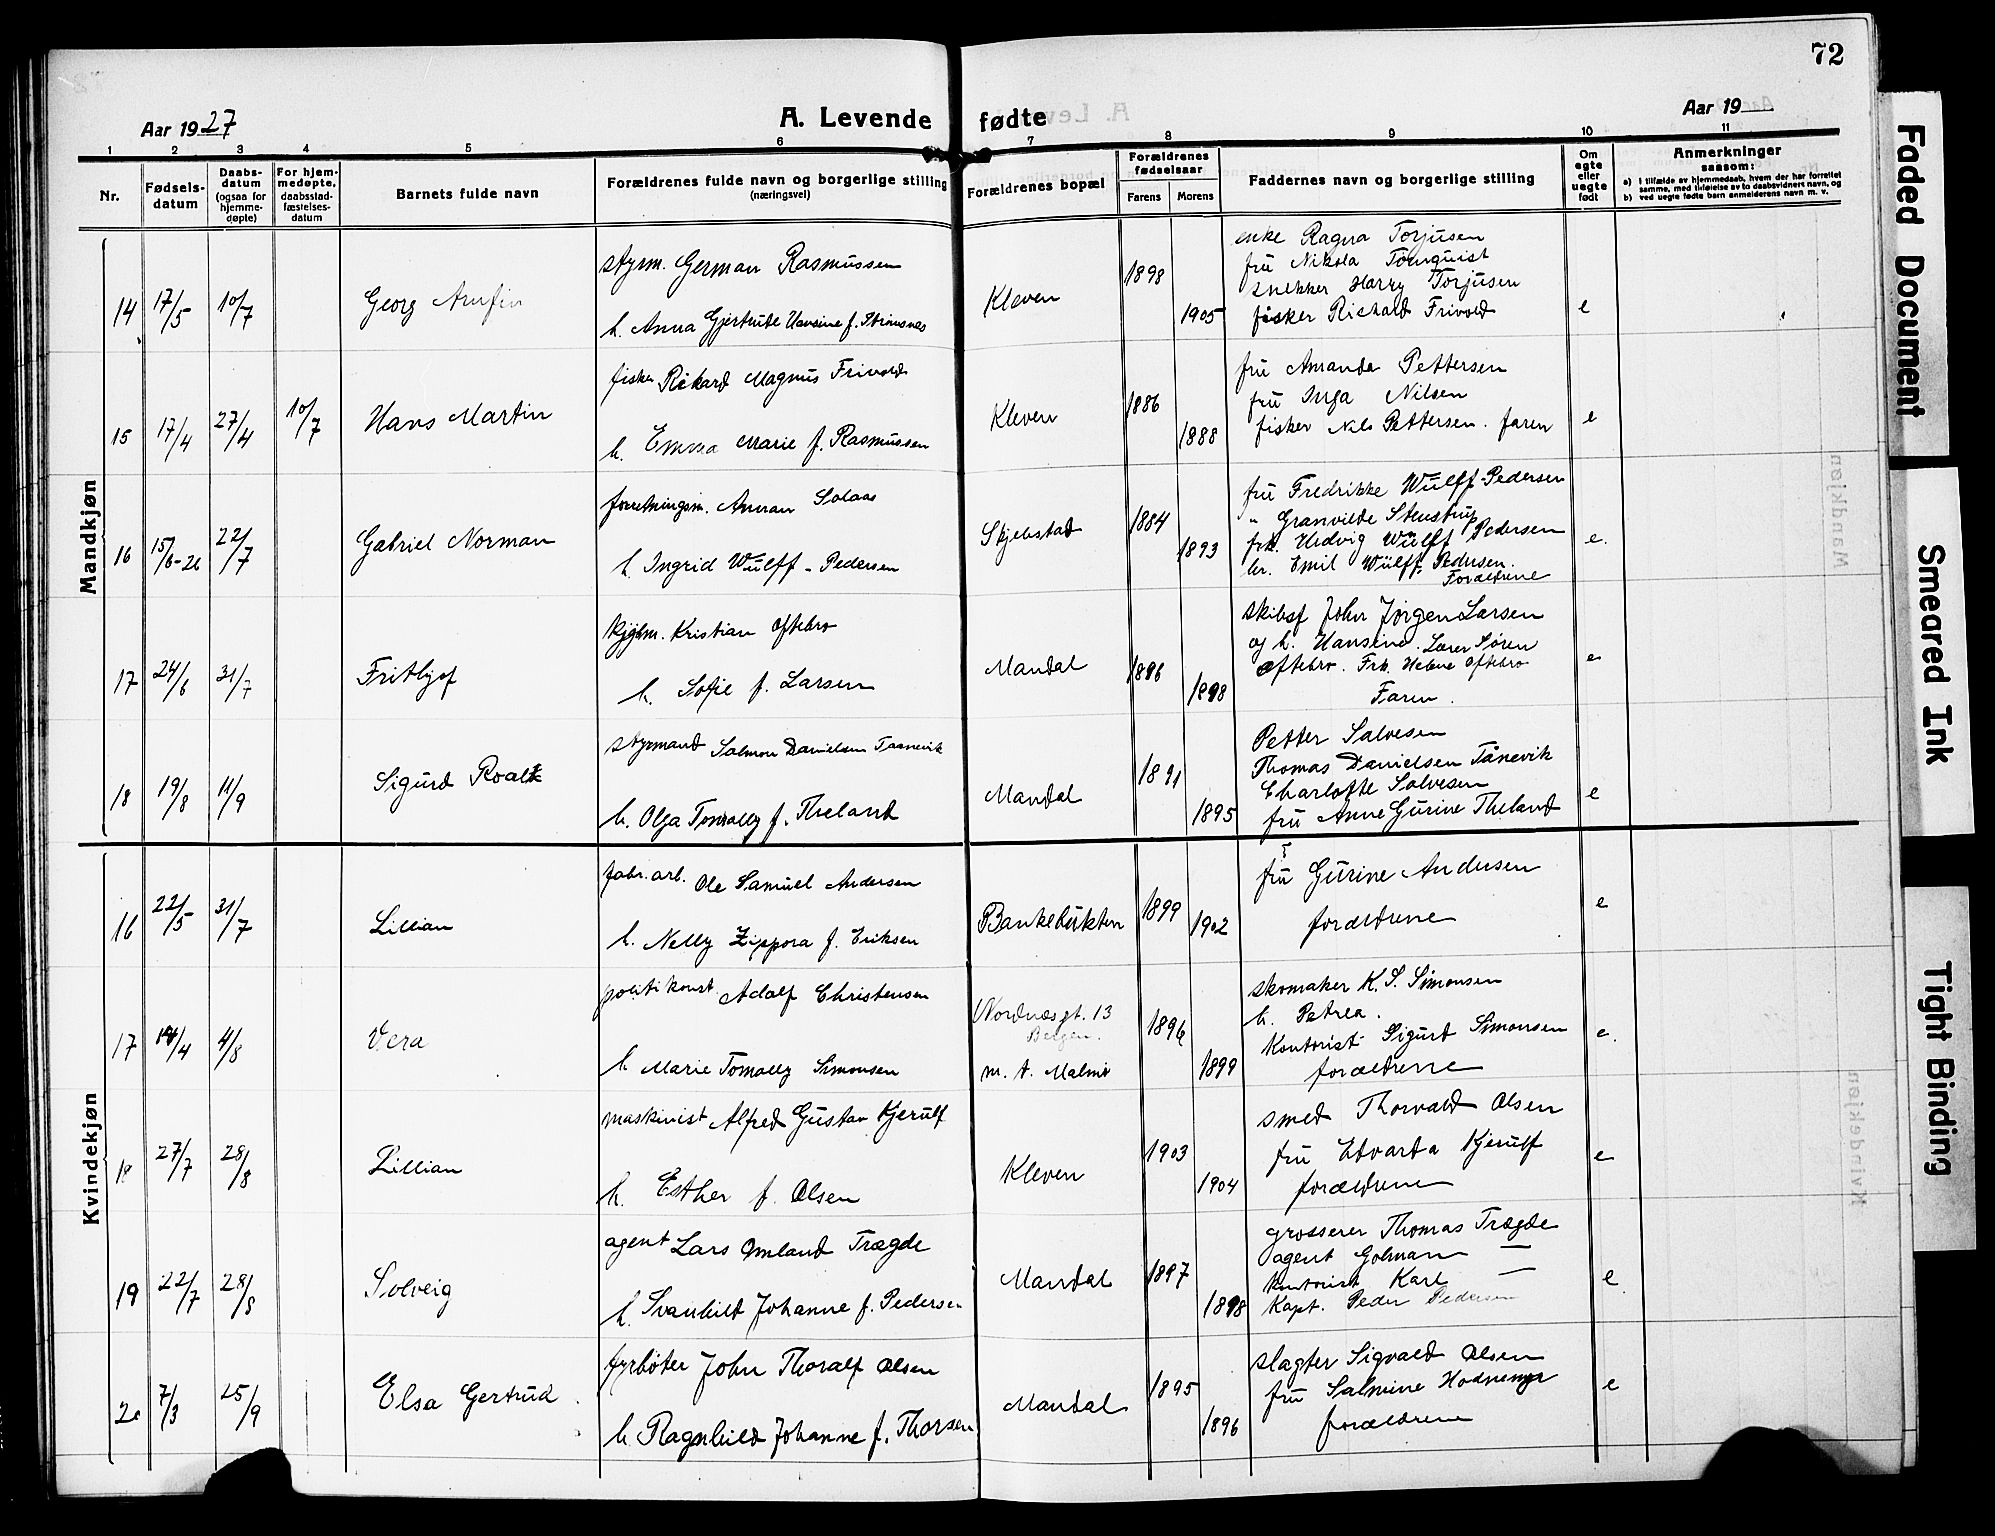 72
Aar 1927
A. Levende fødte
Aar 19
1 2 3 4 5 6 7 8 9 10 11
Nr.
Fødselsdatum
Daabsdatum (ogsaa for hjemmedøpte)
For hjemmedøpte, daabsstadfæstelsesdatum
Barnets fulde navn
Forældrenes fulde navn og borgerlige stilling (næringsvei)
Forældrenes bopæl
Forældrenes fødselsaar
Farens Morens
Faddernes navn og borgerlige stilling
Om egte eller uegte født
Anmerkninger saasom:
a) i tilfælde av hjemmedaab, hvem der har forrettet samme, med tilføielse av to daabsvidners navn, og
b) ved uegte fødte barn anmelderens navn m. v.
Mandkjøn
14 17/5 10/7 Georg Arnfin
styrm. German Rasmussen
h. Anna Gjertrute Hansine f.
Kleven 1898 1905
enke Ragna Torjusen
fru Nikola Törnquist
snekker Harry Torjusen
fisker Richald Frivold
e
15 17/4 27/4 10/7 Hans Martin
fisker Rikard Magnus Frivold
h. Emma Marie f. Rasmussen
Kleven 1886 1888
fru Amanda Pettersen
fru Inga Nilsen
fisker Nils Pettersen. faren
e
16 15/6-26 22/7 Gabriel Norman
forretningsm. Anman Solaas
h. Ingrid Wülff-Pedersen
Skjebstad 1884 1893
fru Fredrikke Wülff-Pedersen
" Granvilde Stenstrup
frk. Hedvig Wülff Pedersen
hr. Emil Wülff-Pedersen.
Forældrene
e.
17 24/6 31/7 Frithjof
kjøbm. Kristian Oftebro
h. Sofie f. Larsen
Mandal 1896 1898
skibsf John Jørgen Larsen
og h. Hansine. Lærer Søren
Oftebro. Frk. Helene Oftebro
Faren.
e
18 19/8 11/9 Sigurd Roald
styrmand Salmon Danielsen Taanevik
h. Olga Tomally f. Theland
Mandal 1891 1895
Petter Salvesen
Thomas Danielsen Tånevik
Charlotte Salvesen
fru Anne Gurine Theland
e
Kvindekjøn
16 22/5 31/7 Lillian
fabr. arb. Ole Samuel Andersen
h. Nelly Zippora f. Eriksen
Bankebukten 1899 1902
fru Gurine Andersen
forældrene
e
17 14/4 4/8 Vera
politikonst. Adolf Christensen
h Marie Tomally Simonsen
Nordnæsgt. 13
Bergen.
m. t. Malmø
1896 1899
skomaker K. S. Simonsen
h. Petrea.
Kontorist Sigurd Simonsen
forældrene
e.
18 27/7 28/8 Lillian
maskinist Alfred Gustav Kjerulf
h. Esther f. Olsen
Kleven 1903 1904
smed Thorvald Olsen
fru Edvarda Kjerulf
forældrene
e
19 22/7 28/8 Solveig
agent Lars Omland Trægde
h. Svanhild Johanne f. Pedersen
Mandal 1897 1898
grosserer Thomas Trægde
agent Golman —
kontorist Karl —
Kapt. Peder Pedersen
e
20 7/3 25/9 Elsa Gertrud
fyrbøter John Thoralf Olsen
h. Ragnhild Johanne f. Thorsen
Mandal 1895 1896
slagter Sigvald Olsen
fru Salmine Hodnemyr
forældrene
e
Faded Document
Smeared Ink
Tight Binding